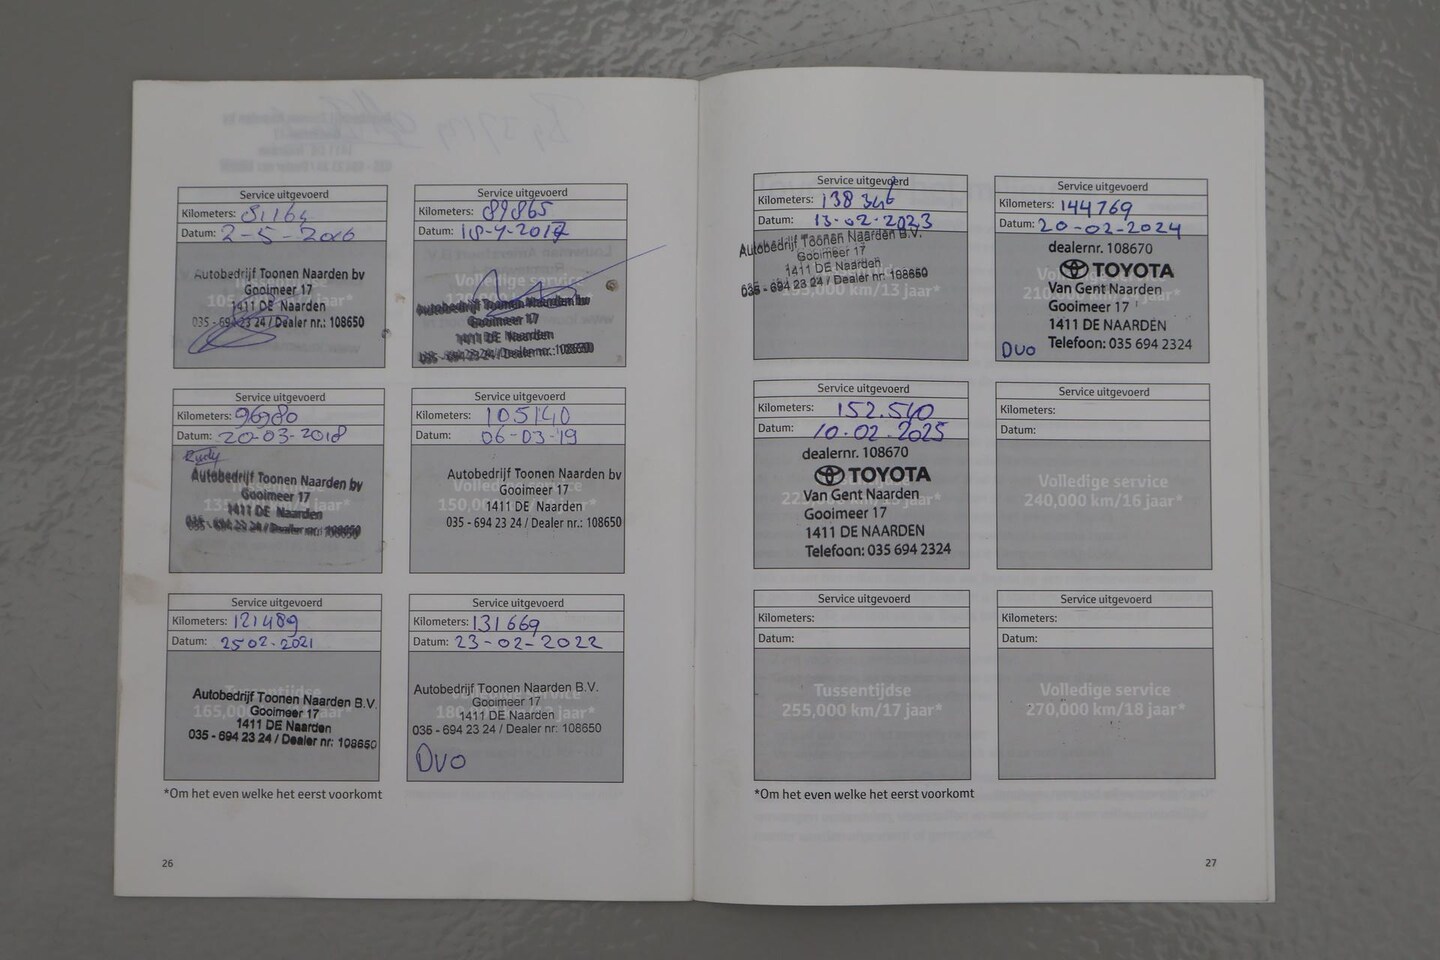 Service uitgevoerd
Kilometers: 81164
Datum: 2-5-2016
Autobedrijf Toonen Naarden bv
Gooimeer 17
1411 DE Naarden
035 - 694 23 24 / Dealer nr.: 108650
Service uitgevoerd
Kilometers: 89865
Datum: 18-4-2017
Volledige service
Autobedrijf Toonen Naarden bv
Gooimeer 17
1411 DE Naarden
035 - 694 23 24 / Dealer nr.: 108650
Service uitgevoerd
Kilometers: 96980
Datum: 20-03-2018
Rudy
Autobedrijf Toonen Naarden bv
Gooimeer 17
1411 DE Naarden
035 - 694 23 24 / Dealer nr.: 108650
Service uitgevoerd
Kilometers: 105140
Datum: 06-03-'19
Autobedrijf Toonen Naarden bv
Gooimeer 17
1411 DE Naarden
035 - 694 23 24 / Dealer nr.: 108650
Service uitgevoerd
Kilometers: 121489
Datum: 25-02-2021
Tussentijdse
Autobedrijf Toonen Naarden B.V.
Gooimeer 17
1411 DE Naarden
035 - 694 23 24 / Dealer nr: 108650
Service uitgevoerd
Kilometers: 131669
Datum: 23-02-2022
Autobedrijf Toonen Naarden B.V.
Gooimeer 17
1411 DE Naarden
035 - 694 23 24 / Dealer nr: 108650
DUO
*Om het even welke het eerst voorkomt
26
Service uitgevoerd
Kilometers: 138346
Datum: 13-02-2023
Autobedrijf Toonen Naarden B.V.
Gooimeer 17
1411 DE Naarden
035 - 694 23 24 / Dealer nr: 108650
195,000 km/13 jaar*
Service uitgevoerd
Kilometers: 144769
Datum: 20-02-2024
dealernr. 108670
TOYOTA
Van Gent Naarden
Gooimeer 17
1411 DE NAARDEN
Telefoon: 035 694 2324
DUO
Service uitgevoerd
Kilometers: 152.540
Datum: 10.02.2025
dealernr. 108670
TOYOTA
Van Gent Naarden
Gooimeer 17
1411 DE NAARDEN
Telefoon: 035 694 2324
Service uitgevoerd
Kilometers:
Datum:
Volledige service
240,000 km/16 jaar*
Service uitgevoerd
Kilometers:
Datum:
Tussentijdse
255,000 km/17 jaar*
Service uitgevoerd
Kilometers:
Datum:
Volledige service
270,000 km/18 jaar*
*Om het even welke het eerst voorkomt
27